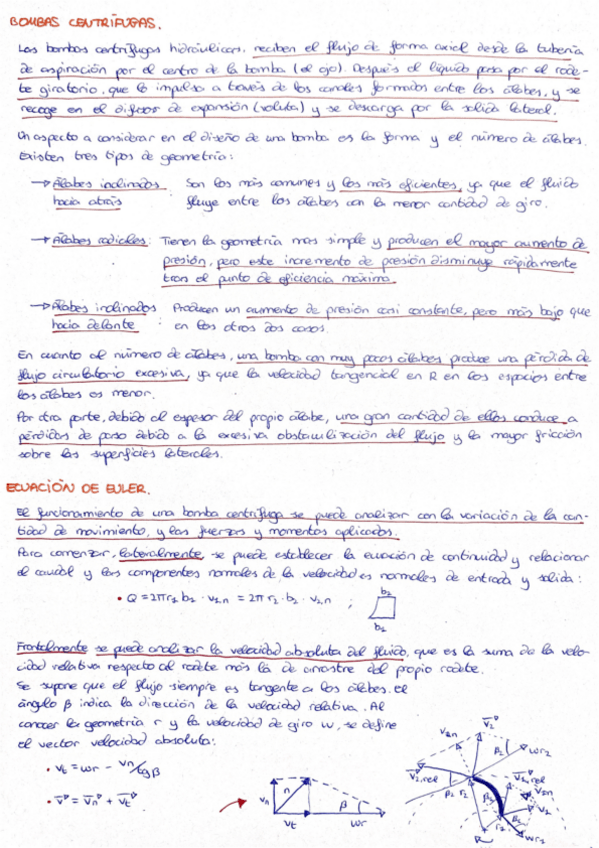 BOMBAS CENTRÍFUGAS.
Las bombas centrífugas hidráulicas, reciben el flujo de forma axial desde la tubería
de aspiración por el centro de la bomba (el ojo). Después el líquido pasa por el rode-
te giratorio, que lo impulsa a través de los canales formados entre los álabes, y se
recoge en el difusor de expansión (voluta) y se descarga por la salida lateral.
Un aspecto a considerar en el diseño de una bomba es la forma y el número de álabes.
Existen tres tipos de geometría:
→ Álabes inclinados Son los más comunes y los más eficientes, ya que el fluido
hacia atrás fluye entre los álabes con la menor cantidad de giro.
→ Álabes radiales: Tienen la geometría más simple y producen el mayor aumento de
presión, pero este incremento de presión disminuye rápidamente
tras el punto de eficiencia máxima.
→ Álabes inclinados Producen un aumento de presión casi constante, pero más bajo que
hacia delante : en los otros dos casos.
En cuanto al número de álabes, una bomba con muy pocos álabes produce una pérdida de
flujo circulatorio excesiva, ya que la velocidad tangencial en R en los espacios entre
los álabes es menor.
Por otra parte, debido al espesor del propio álabe, una gran cantidad de ellos conduce a
pérdidas de paso debido a la excesiva obstaculización del flujo y la mayor fricción
sobre las superficies laterales.
ECUACIÓN DE EULER.
El funcionamiento de una bomba centrífuga se puede analizar con la variación de la can-
tidad de movimiento, y las fuerzas y momentos aplicados.
Para comenzar, lateralmente, se puede establecer la ecuación de continuidad y relacionar
el caudal y las componentes normales de la velocidad es normales de entrada y salida:
• Q = 2πr₁ b₁ · v₁,n = 2π r₂ · b₂ · v₂,n ;
b₂
b₁
Frontalmente se puede analizar la velocidad absoluta del fluido, que es la suma de la velo-
cidad relativa respecto al rodete más la de arrastre del propio rodete.
Se supone que el flujo siempre es tangente a los álabes. El
ángulo β indica la dirección de la velocidad relativa. Al
conocer la geometría r y la velocidad de giro w, se define
el vector velocidad absoluta:
• vt = wr - vn/tgβ
• v = vn + vt
vn
vt
β
wr
v₂n
v₂
β₂
wr₂
v₂,rel
β₂
r₂
v₁,rel
v₁n
v₁
β₁
r₁
wr₁
R